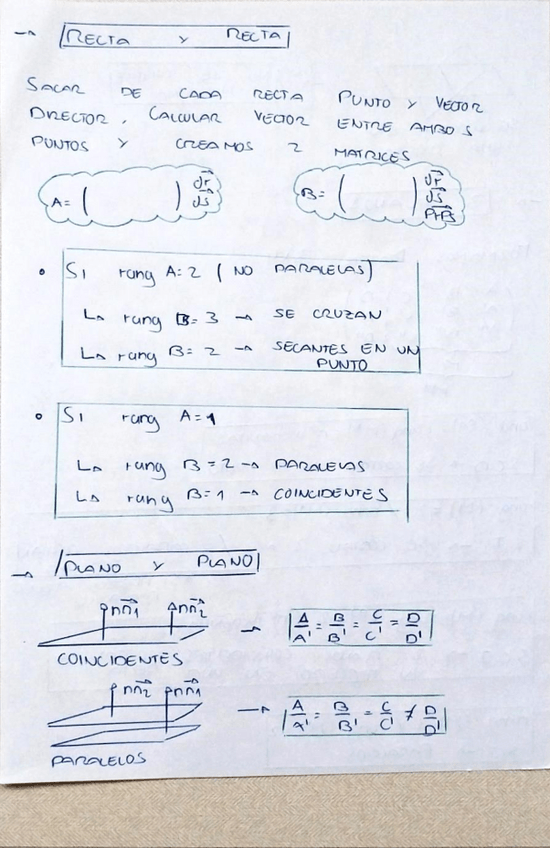 → RECTA Y RECTA
SACAR DE CADA RECTA PUNTO Y VECTOR
DIRECTOR, CALCULAR VECTOR ENTRE AMBOS
PUNTOS Y CREAMOS 2 MATRICES
A = ( ) dr→ ds→
B = ( ) dr→ ds→ PrPs→
• SI rang A = 2 (NO PARALELAS)
↳ rang B = 3 → SE CRUZAN
↳ rang B = 2 → SECANTES EN UN
PUNTO
• SI rang A = 1
↳ rang B = 2 → PARALELAS
↳ rang B = 1 → COINCIDENTES
→ PLANO Y PLANO
nπ1→ nπ2→ → A/A' = B/B' = C/C' = D/D'
COINCIDENTES
nπ2→ nπ1→ → A/A' = B/B' = C/C' ≠ D/D'
PARALELOS